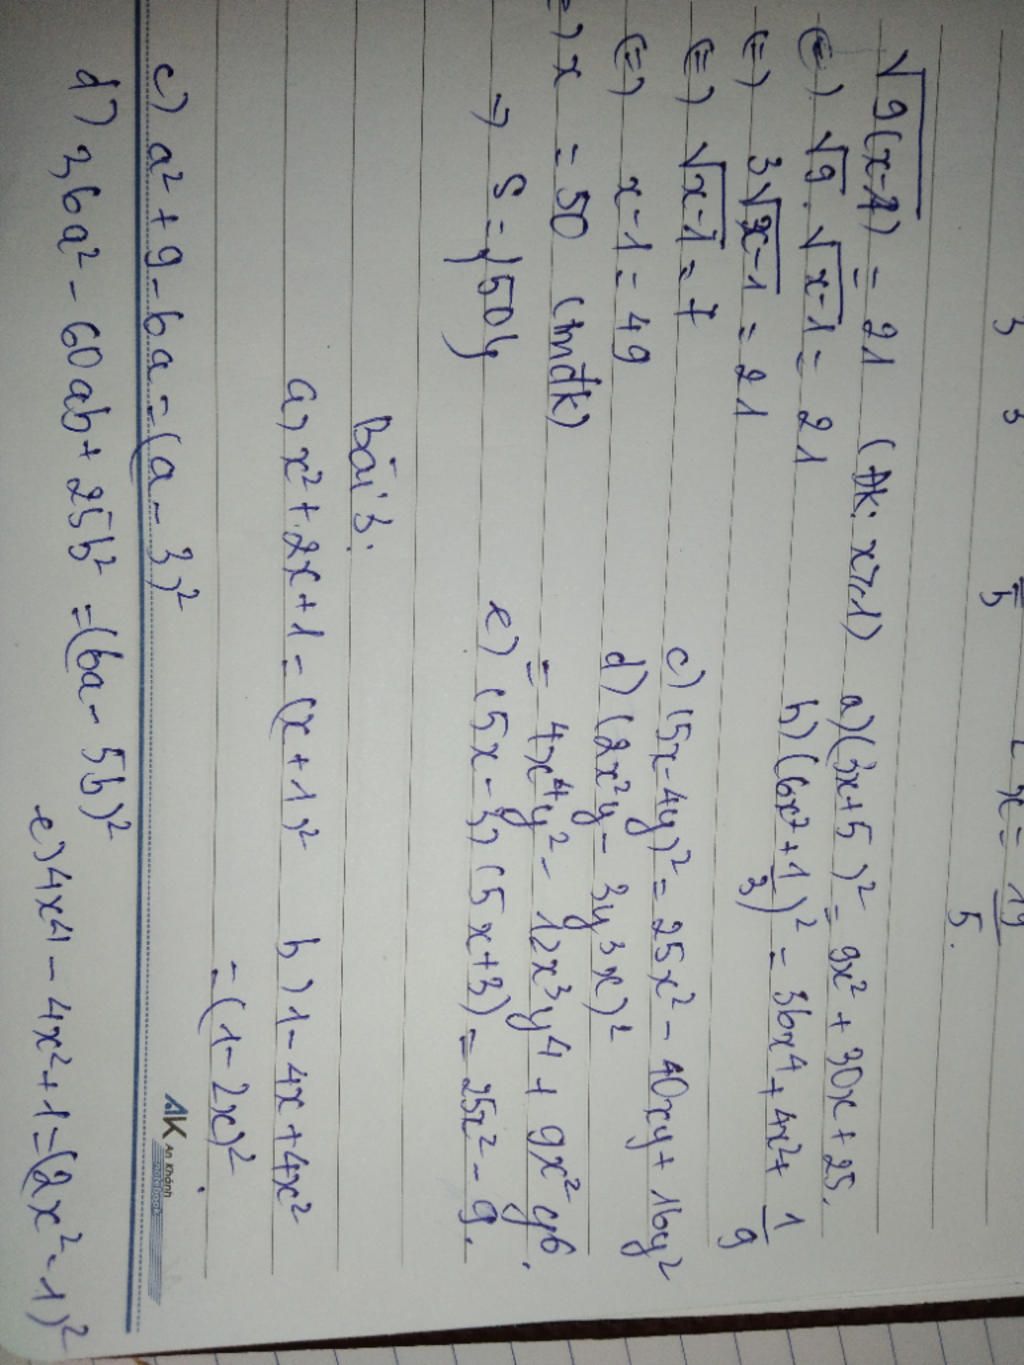 3 3 5 2x = 19/5.
√9(x-1) = 21 (ĐK: x≥1)
(=) √9. √x-1 = 21
(=) 3√x-1 = 21
(=) √x-1 = 7
(=) x-1 = 49
=> x = 50 (tmđk)
=> S = {50}
a) (3x+5)² = 9x² + 30x + 25.
b) (6x² + 1/3)² = 36x⁴ + 4x² + 1/9
c) (5x-4y)² = 25x² - 40xy + 16y²
d) (2x²y - 3y³x)²
= 4x⁴y² - 12x³y⁴ + 9x²y⁶.
e) (5x-3) (5x+3) = 25x² - 9.
Bài 3.
a, x² + 2x + 1 = (x+1)² b) 1 - 4x + 4x²
= (1-2x)².
c) a² + 9 - 6a = (a-3)²
AK An Khánh notebook
d) 36a² - 60ab + 25b² = (6a - 5b)²
e) 4x⁴ - 4x² + 1 = (2x² - 1)²